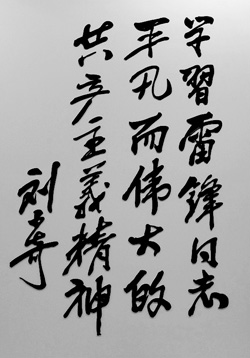 学習雷鋒同志
平凡而伟大的
共产主義精神
刘少奇